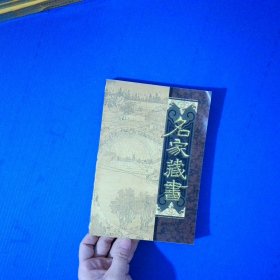 名家藏書